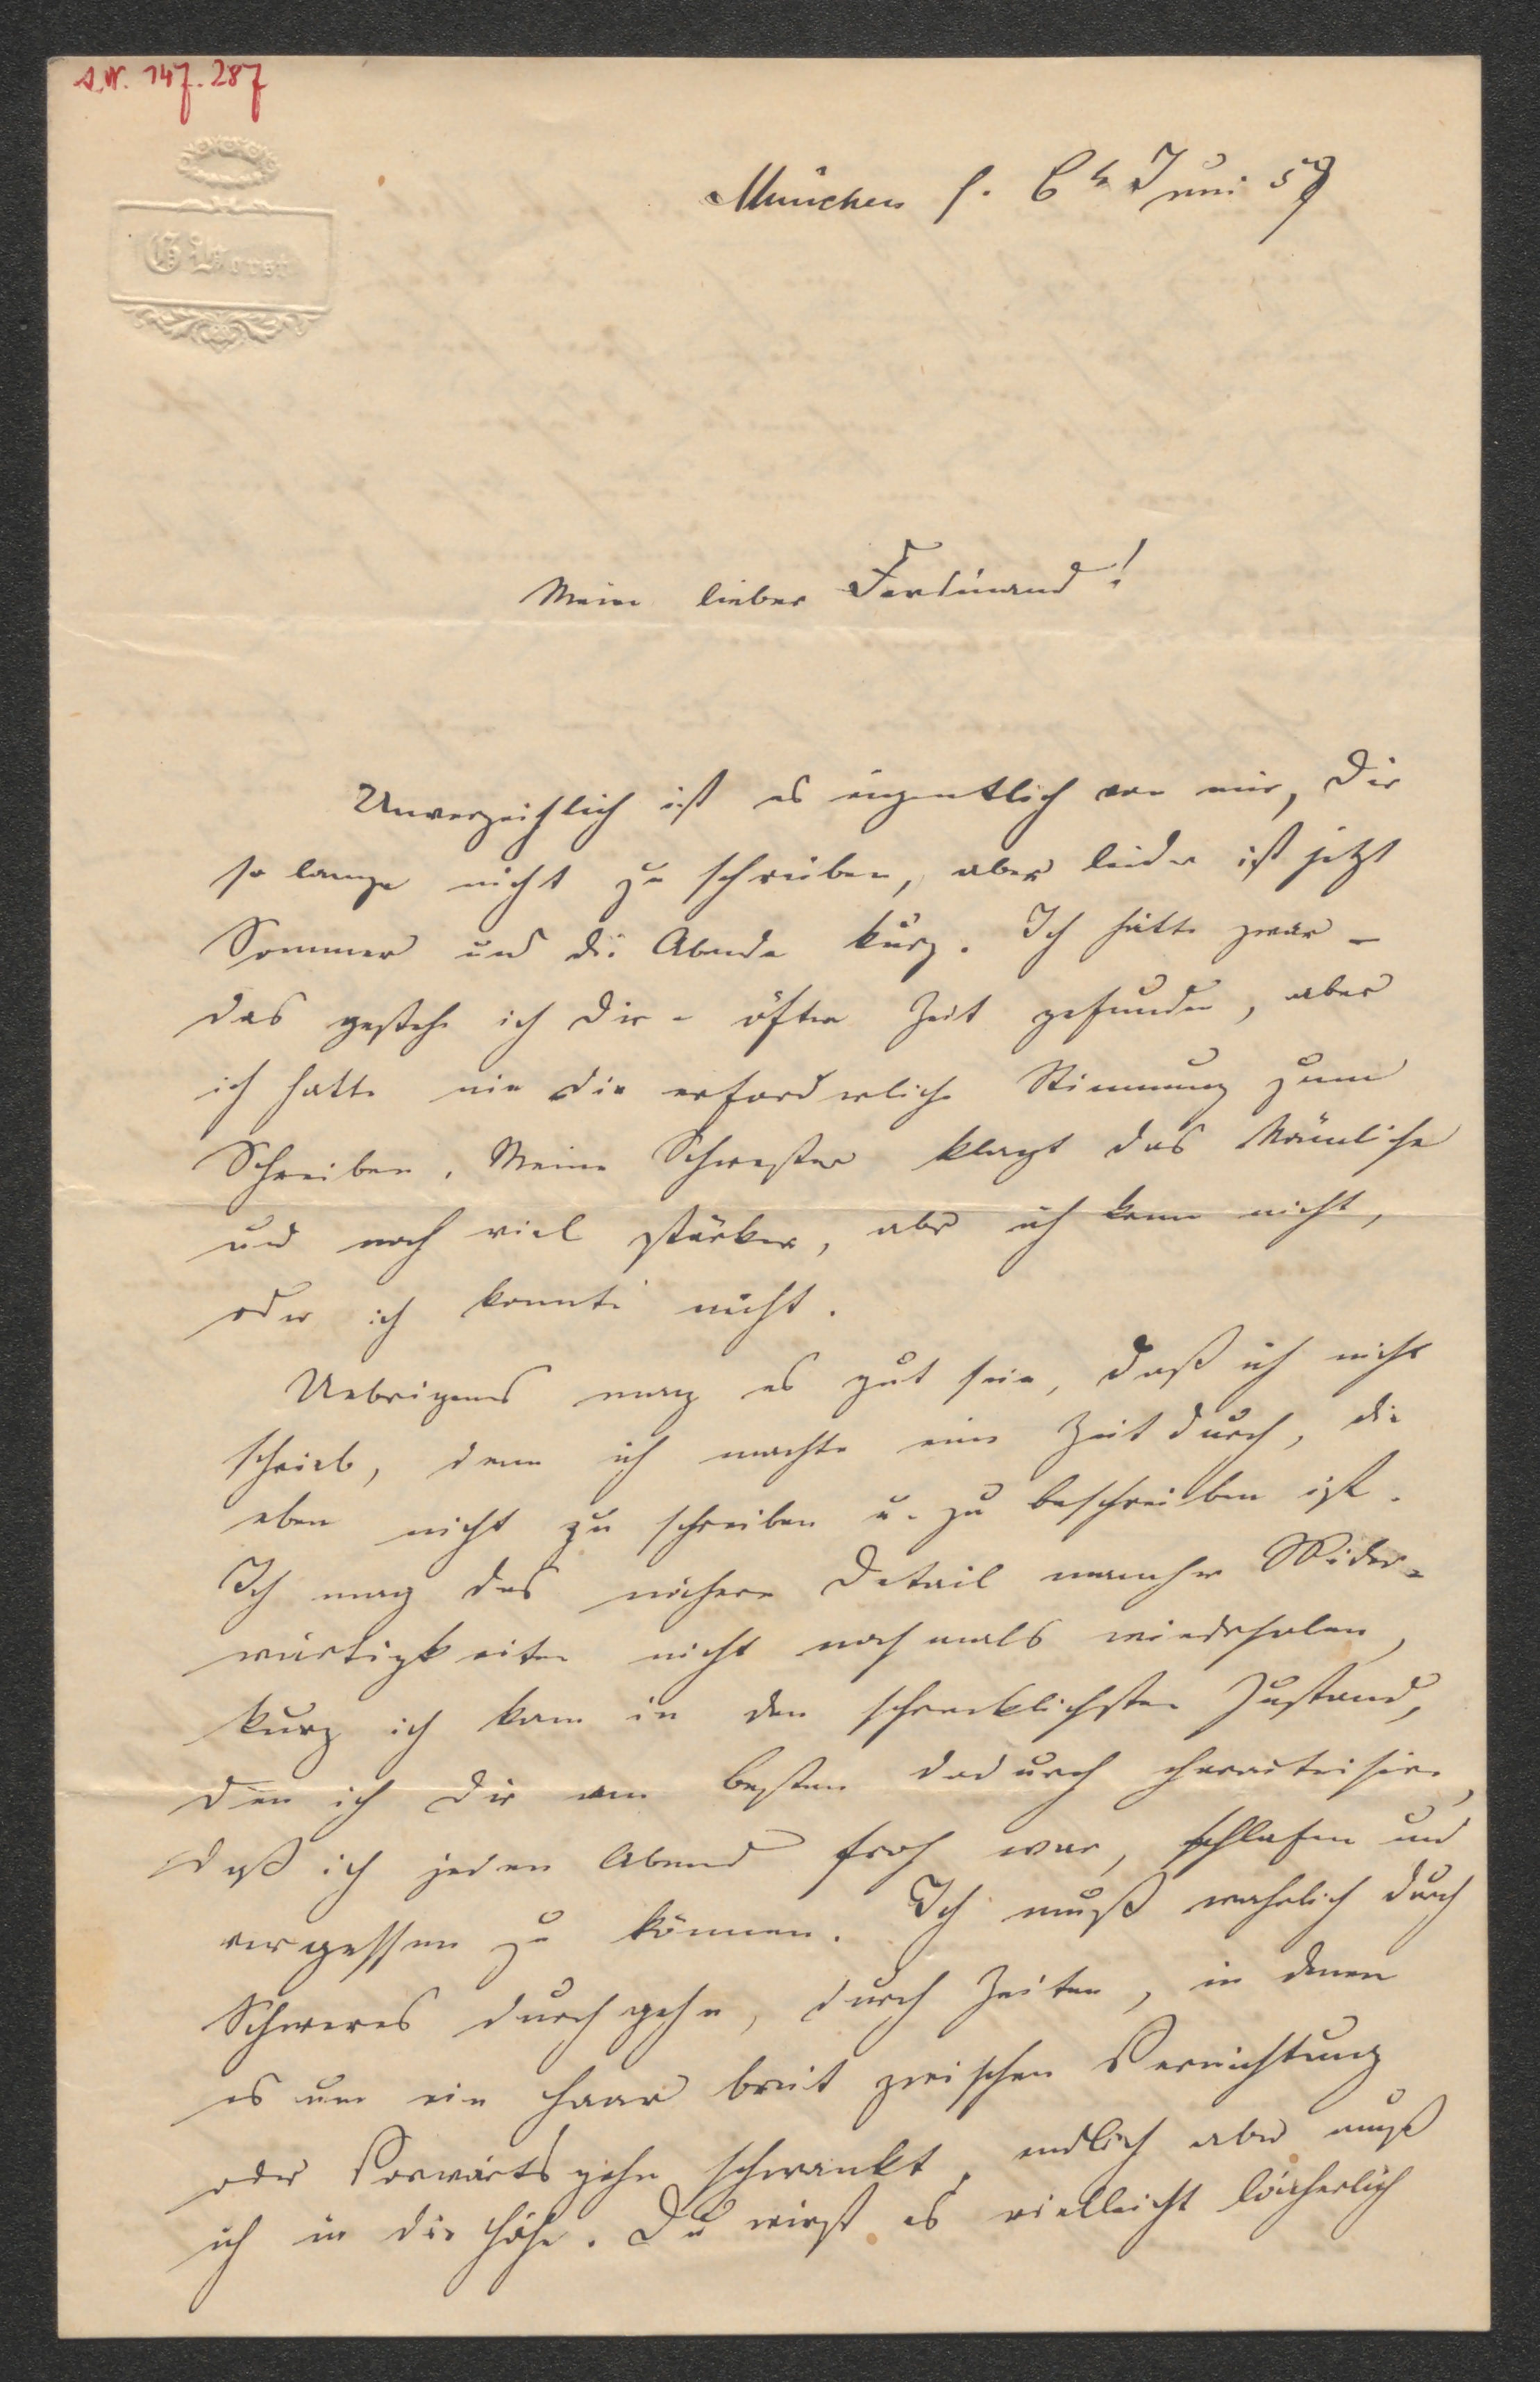 S.N. 147.287
München d. 6t Juni 59
Mein lieber Ferdinand!
Unverzeihlich ist es eigentlich von mir, Dir
so lange nicht zu schreiben, aber leider ist jetzt
Sommer und die Abende kurz. Ich hätte zwar –
das gestehe ich Dir – öfter Zeit gefunden, aber
ich hatte nie die erforderliche Stimmung zum
Schreiben. Meine Schwester klagt das Nämliche
und noch viel stärker, aber ich kann nicht,
oder ich konnte nicht.
Uebrigens mag es gut sein, daß ich nicht
schrieb, denn ich machte eine Zeit durch, die
eben nicht zu schreiben u. zu beschreiben ist.
Ich mag das nähere Detail mancher Wider-
wärtigkeiten nicht nochmals wiederholen,
kurz ich kam in den schrecklichsten Zustand,
den ich Dir am besten dadurch charakterisire,
daß ich jeden Abend froh war, schlafen und
vergessen zu können. Ich muß wahrlich durch
Schweres durchgehn, durch Zeiten, in denen
es um ein Haar breit zwischen Vernichtung
oder Vorwärtsgehn schwankt, endlich aber muß
ich in die Höhe. Du wirst es vielleicht lächerlich